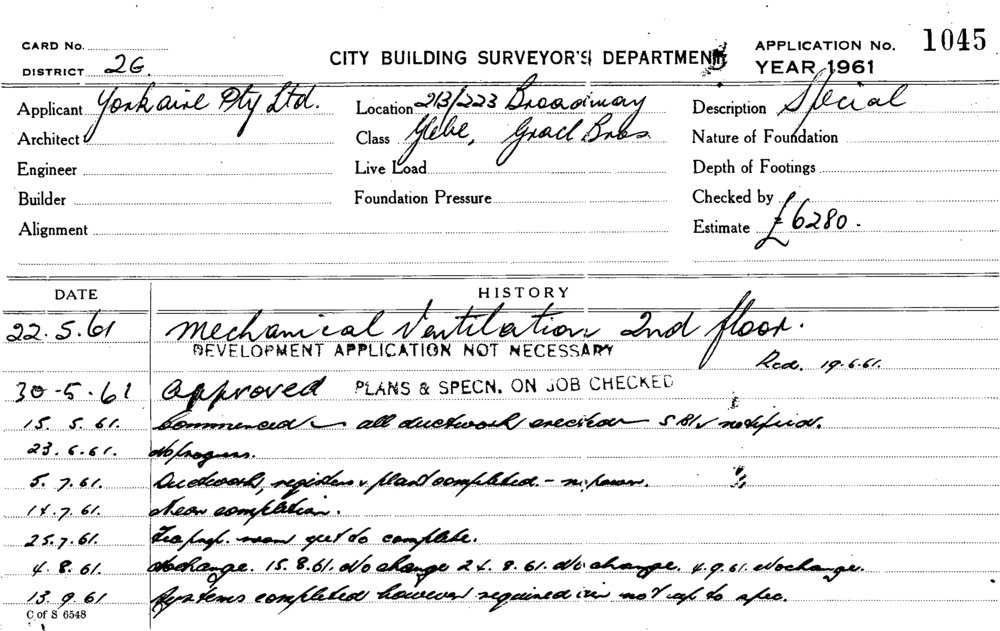 CARD No.
DISTRICT 2G.
CITY BUILDING SURVEYOR'S DEPARTMENT
APPLICATION No. 1045
YEAR 1961
Applicant Yorkaire Pty Ltd. Location 213/223 Broadway Description Special
Architect Class Glebe, Grace Bros. Nature of Foundation
Engineer Live Load Depth of Footings
Builder Foundation Pressure Checked by
Alignment Estimate £6280.
DATE HISTORY
22.5.61 Mechanical Ventilation 2nd floor.
DEVELOPMENT APPLICATION NOT NECESSARY
Red. 19.6.61.
30-5.61 Approved PLANS & SPECN. ON JOB CHECKED
15. 5. 61. Commenced all ductwork erected notified.
23.6.61. No progress.
5. 7.61. Ductwork, registers & plant completed. - no power.
14.7.61. Near completion.
25.7.61. room yet to complete.
4.8.61. No change. 15.8.61. No change 24.8.61. No change. 4.9.61. No change.
13.9.61 Systems completed however required not up to spec.
C of S 6548